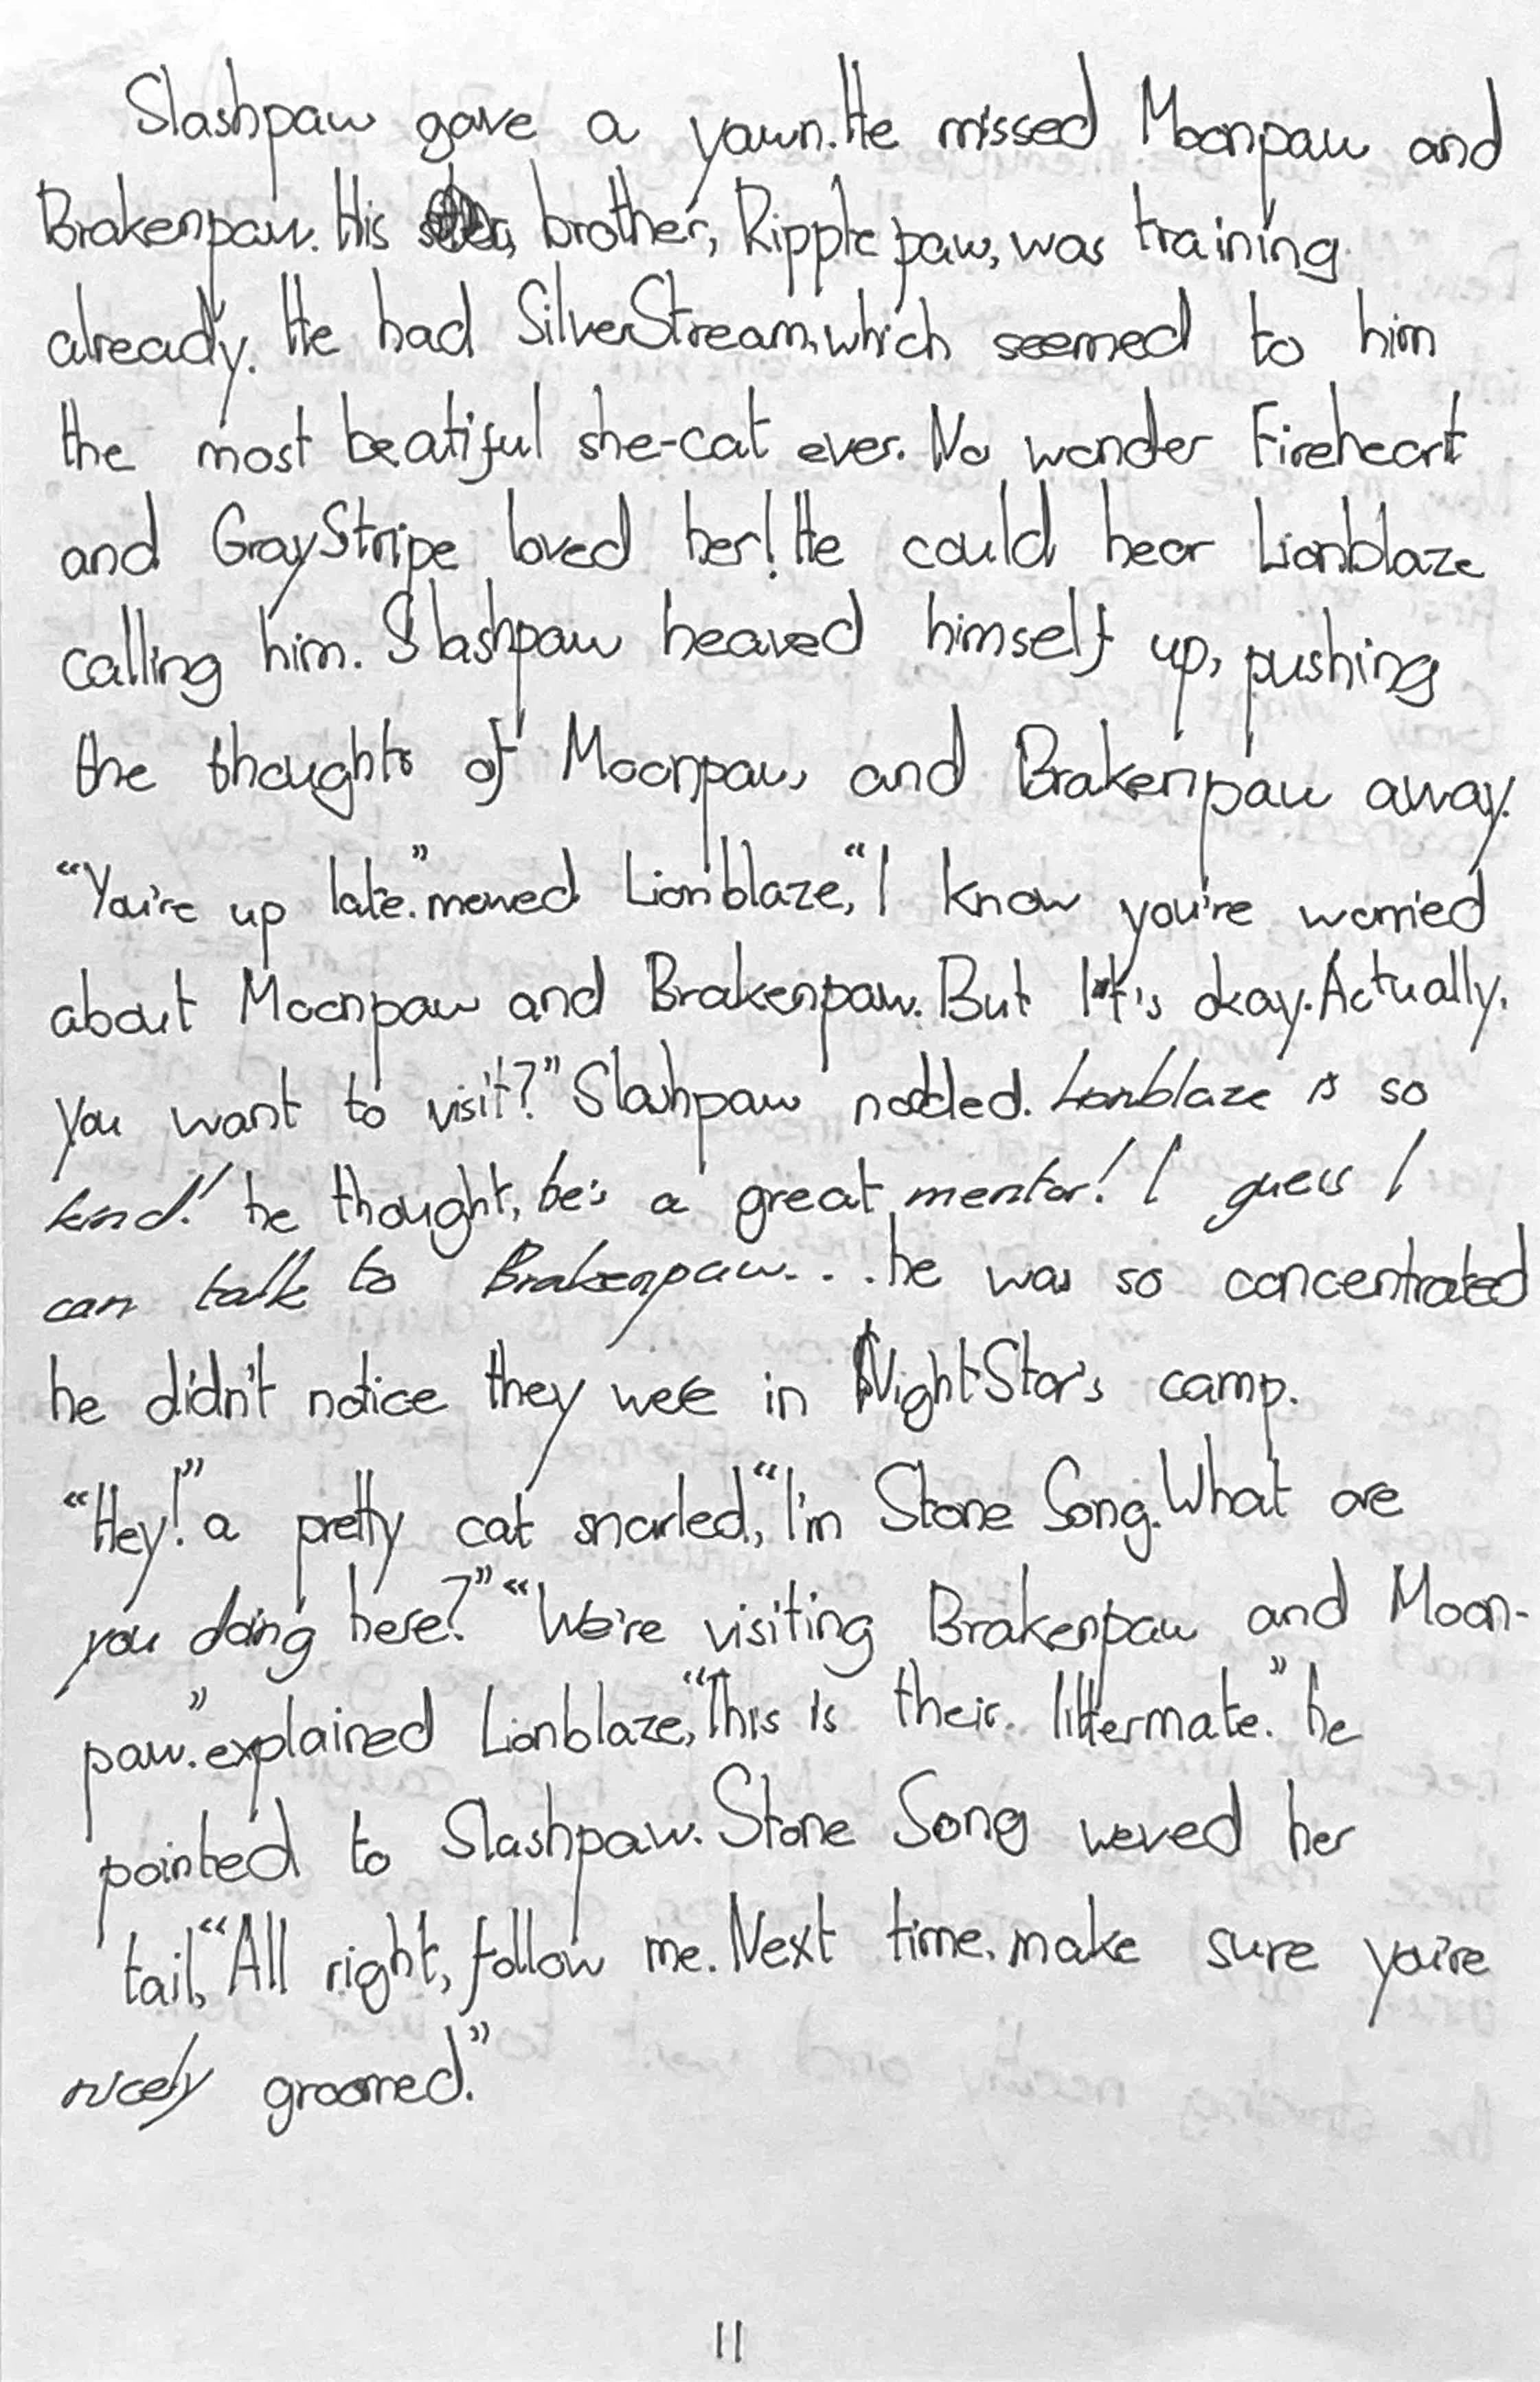 Slashpaw gave a yawn. He missed Moonpaw and
Brakenpaw. His brother, Ripplepaw, was training
already. He had SilverStream, which seemed to him
the most beatiful she-cat ever. No wonder Fireheart
and GrayStripe loved her! He could hear Lionblaze
calling him. Slashpaw heaved himself up, pushing
the thoughts of Moonpaw and Brakenpaw away.
“You're up late.” mewed Lionblaze, “I know you're worried
about Moonpaw and Brakenpaw. But It's okay. Actually,
you want to visit?” Slashpaw nodded. Lionblaze is so
kind! he thought, he's a great mentor! I guess I
can talk to Brakenpaw... he was so concentrated
he didn't notice they were in NightStar's camp.
“Hey!” a pretty cat snarled, “I'm Stone Song. What are
you doing here?” “We're visiting Brakenpaw and Moon-
paw.” explained Lionblaze, “This is their littermate.” he
pointed to Slashpaw. Stone Song weved her
tail, “All right, follow me. Next time, make sure you're
nicely groomed.”
11